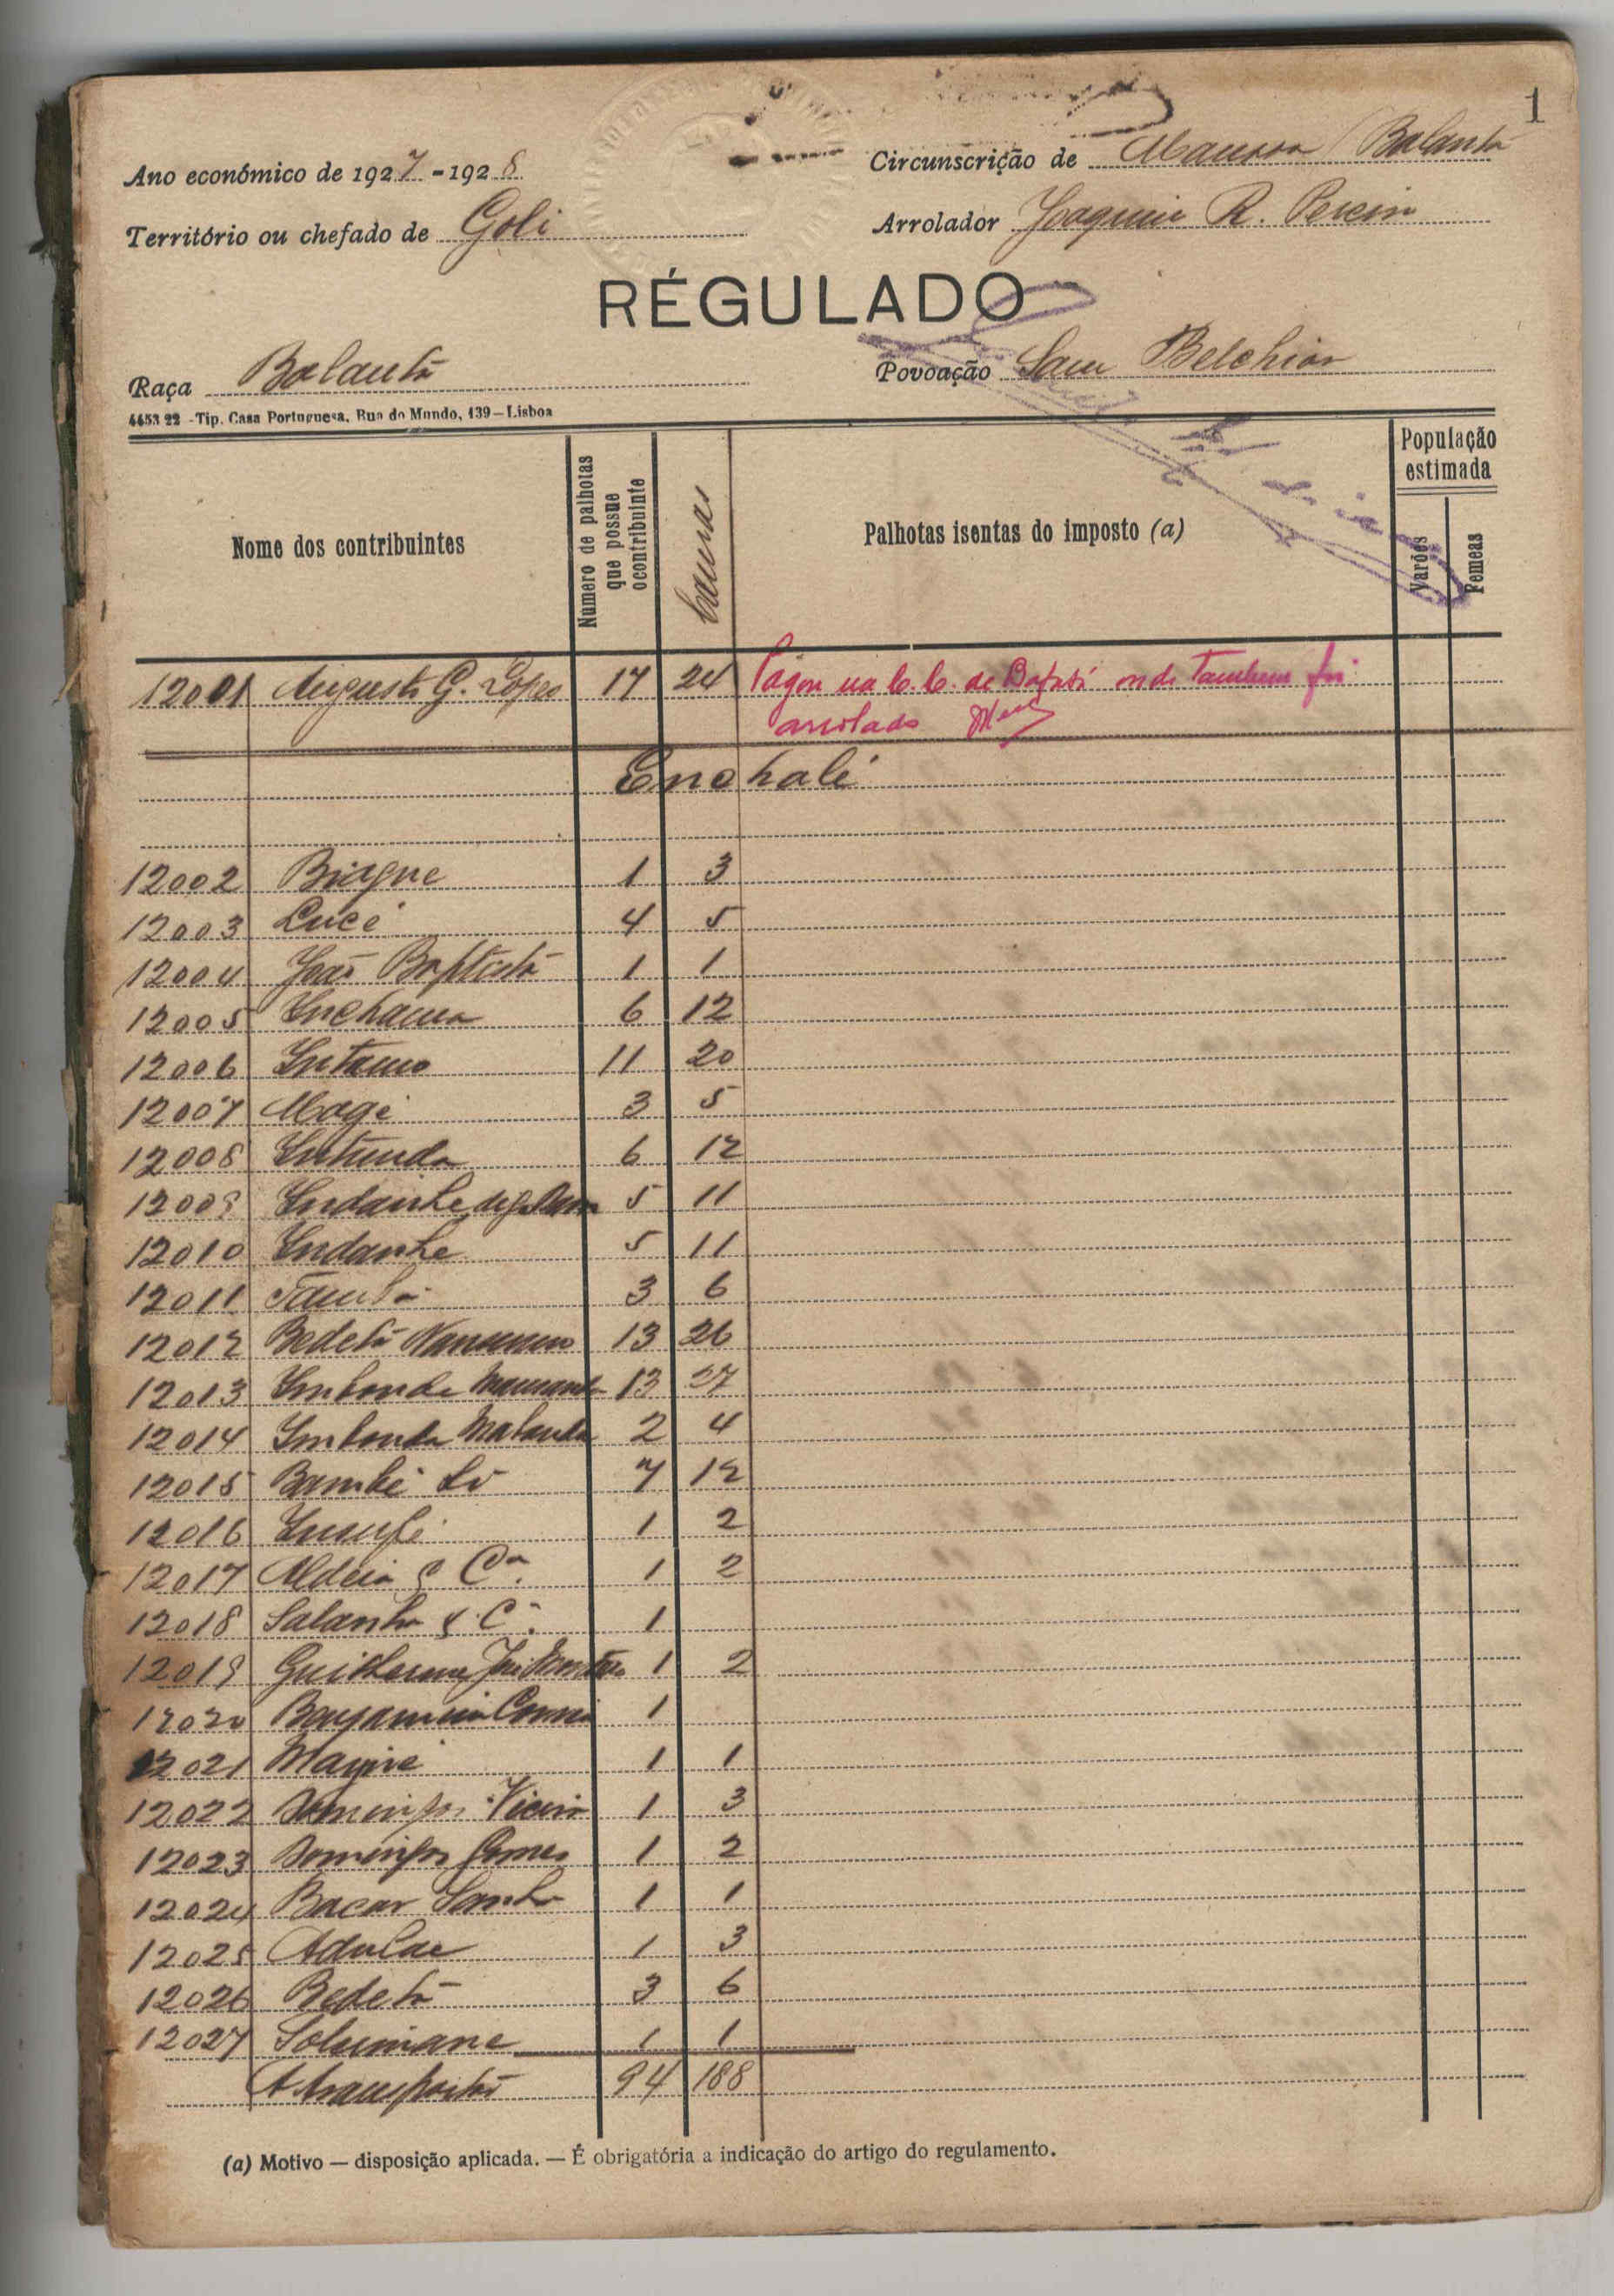 1
Ano económico de 1927-1928
Circunscrição de Mansoa Balanta
Território ou chefado de Goli
Arrolador Joaquim R. Pereira
RÉGULADO
Raça Balanta
Povoação Sam Belchior
4453 22 - Tip. Casa Portuguesa, Rua do Mundo, 139 - Lisboa
Nome dos contribuintes
Numero de palhotas que possue o contribuinte
Camas
Palhotas isentas do imposto (a)
População estimada
Varões
Femeas
12001 Augusto G. Lopes 17 24 Pagou na C. C. de Bafatá onde tambem foi
arrolado
Enchalé
12002 Biague 1 3
12003 Lucé 4 5
12004 João Baptista 1 1
12005 Inchama 6 12
12006 Intamo 11 20
12007 Magi 3 5
12008 Intunda 6 12
12009 Indanhe 5 11
12010 Indanhe 5 11
12011 Tambá 3 6
12012 Bedetá 13 26
12013 Imbonde 13 27
12014 Imbonde 2 4
12015 Bambé 7 12
12016 1 2
12017 Aldeia & Cª. 1 2
12018 Salanha & Cª. 1
12019 Guilherme José 1 2
12020 Benjamim Correia 1
12021 Mamé 1 1
12022 Domingos Vieira 1 3
12023 Domingos Gomes 1 2
12024 Bacar Sanhá 1 1
12025 Adulae 1 3
12026 Bedetá 3 6
12027 Solumane 1 1
A transportar 94 188
(a) Motivo — disposição aplicada. — É obrigatória a indicação do artigo do regulamento.